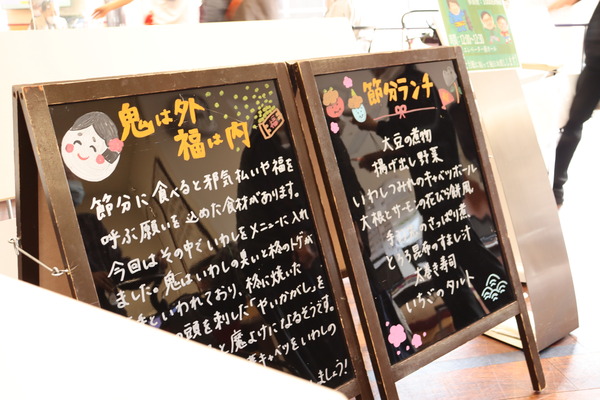 鬼は外
福は内
節分に食べると邪気払いや福を
呼ぶ願いを込めた食材があります。
今回はその中でいわしをメニューに入れ
ました。鬼はいわしの臭いと柊のトゲが
といわれており、柊に焼いた
の頭を刺した「やいかがし」を
と魔よけになるそうです。
キャベツをいわしの
ましょう!
節分ランチ
大豆の煮物
揚げ出し野菜
いわしつみれのキャベツボール
大根とサーモンの花びら餅風
手
のさっぱり煮
とろろ昆布のすまし汁
太巻き寿司
いちごのタルト